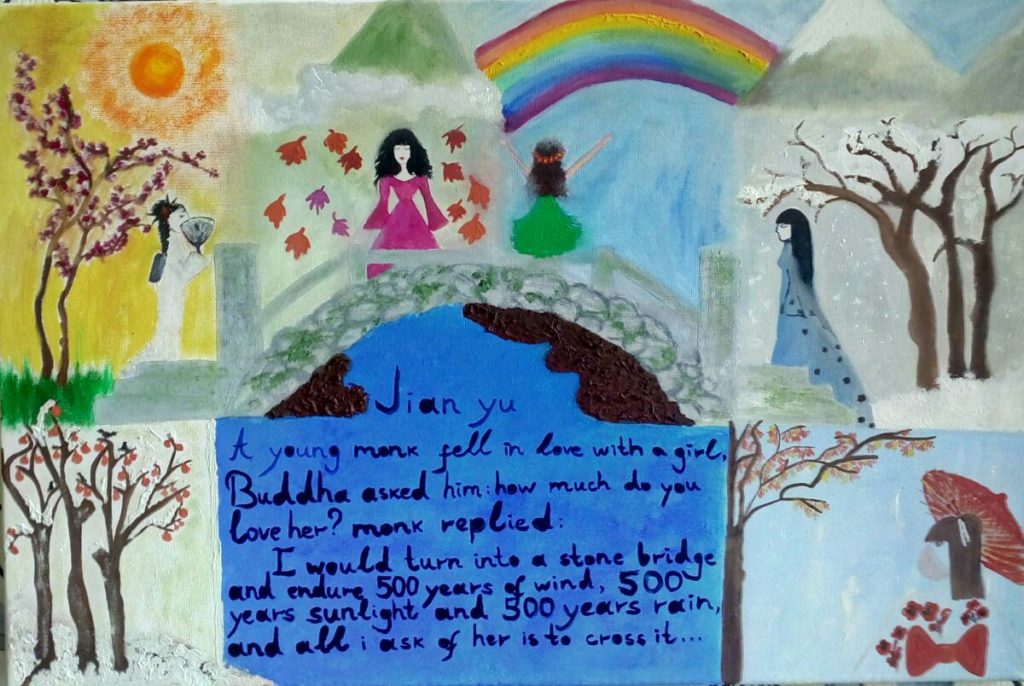 Jian yu
A young monk fell in love with a girl,
Buddha asked him: how much do you
love her? monk replied:
I would turn into a stone bridge
and endure 500 years of wind, 500
years sunlight and 500 years rain,
and all i ask of her is to cross it...